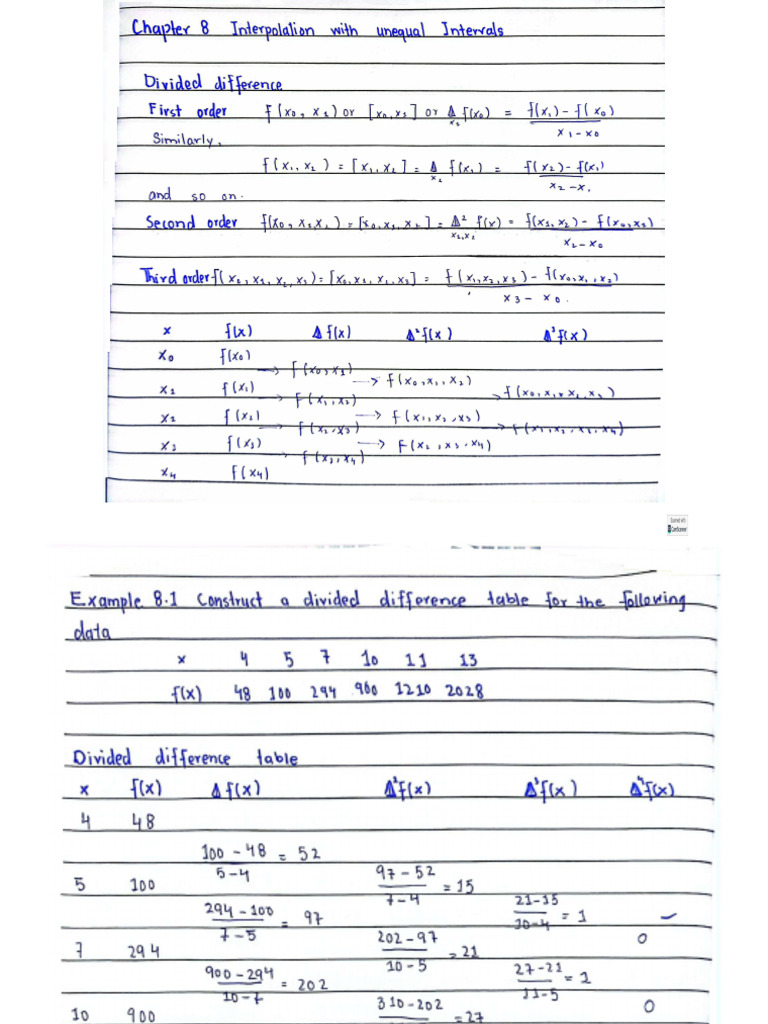 Chapter 8 Interpolation with unequal Intervals
Divided difference
First order f(x₀, x₁) or [x₀, x₁] or Δ f(x₀) = f(x₁) – f(x₀)
x₂ x₁ – x₀
Similarly,
f(x₁, x₂) = [x₁, x₂] = Δ f(x₁) = f(x₂) – f(x₁)
x₂ x₂ – x₁
and so on.
Second order f(x₀, x₁, x₂) = [x₀, x₁, x₂] = Δ² f(x) = f(x₁, x₂) – f(x₀, x₁)
x₁, x₂ x₂ – x₀
Third order f(x₀, x₁, x₂, x₃) = [x₀, x₁, x₂, x₃] = f(x₁, x₂, x₃) – f(x₀, x₁, x₂)
x₃ – x₀.
x f(x) Δ f(x) Δ² f(x) Δ³ f(x)
x₀ f(x₀)
→ f(x₀, x₁)
→ f(x₀, x₁, x₂)
x₁ f(x₁)
→ f(x₁, x₂) → f(x₀, x₁, x₂, x₃)
x₂ f(x₂) → f(x₁, x₂, x₃)
→ f(x₂, x₃) → f(x₁, x₂, x₃, x₄)
x₃ f(x₃) → f(x₂, x₃, x₄)
→ f(x₃, x₄)
x₄ f(x₄)
Scanned with
CamScanner
Example 8.1 Construct a divided difference table for the following
data
x 4 5 7 10 11 13
f(x) 48 100 294 900 1210 2028
Divided difference table
x f(x) Δ f(x) Δ² f(x) Δ³ f(x) Δ⁴ f(x)
4 48
100 – 48 = 52
5 – 4
97 – 52 = 15
5 100 7 – 4
294 – 100 = 97 21 – 15 = 1
7 – 5 10 – 4
7 294 202 – 97 = 21 0
10 – 5
900 – 294 = 202 27 – 21 = 1
10 – 7 11 – 5
10 900 310 – 202 = 27 0